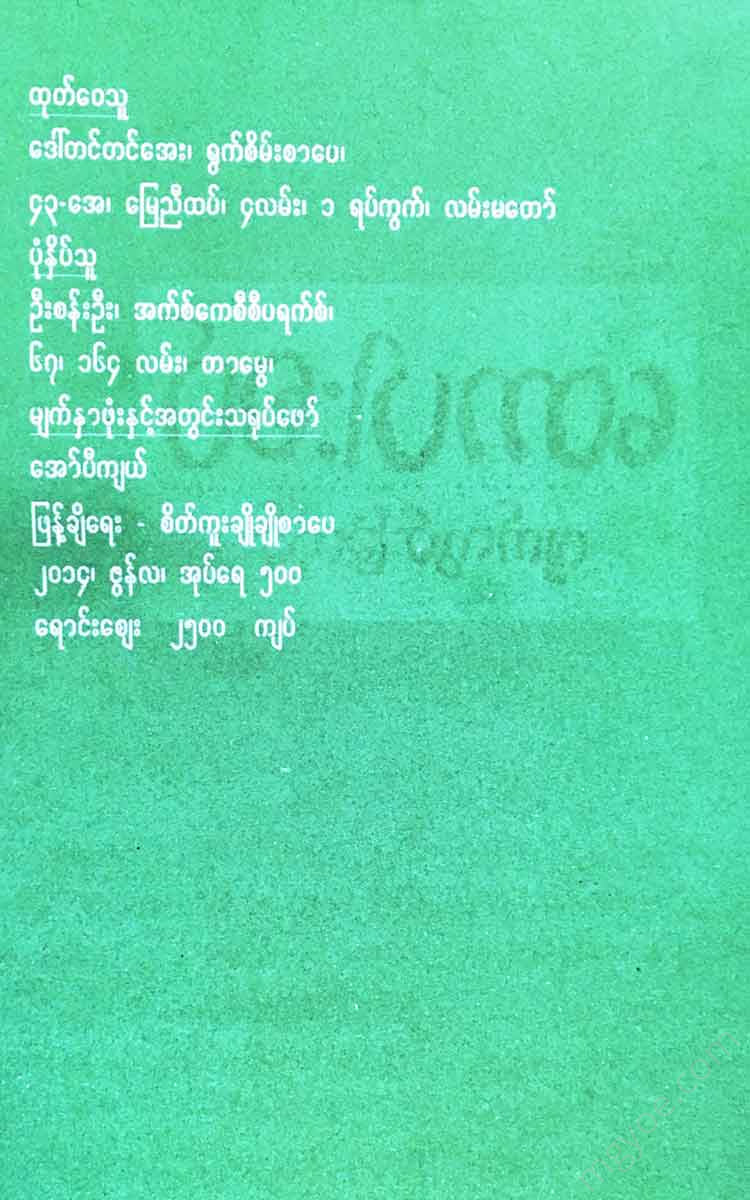 ထုတ်ဝေသူ
ဒေါ်တင်တင်အေး၊ ရွက်စိမ်းစာပေ၊
၄၃-အေ၊ မြေညီထပ်၊ ၄လမ်း၊ ၁ ရပ်ကွက်၊ လမ်းမတော်
ပုံနှိပ်သူ
ဦးစန်းဦး၊ အက်စ်ကေစီစီပရက်စ်၊
၆၇၊ ၁၆၄ လမ်း၊ တာမွေ၊
မျက်နှာဖုံးနှင့်အတွင်းသရုပ်ဖော်
အော်ပီကျယ်
ဖြန့်ချိရေး - စိတ်ကူးချိုချိုစာပေ
၂၀၁၄၊ ဇွန်လ၊ အုပ်ရေ ၅၀၀
ရောင်းဈေး ၂၅၀၀ ကျပ်